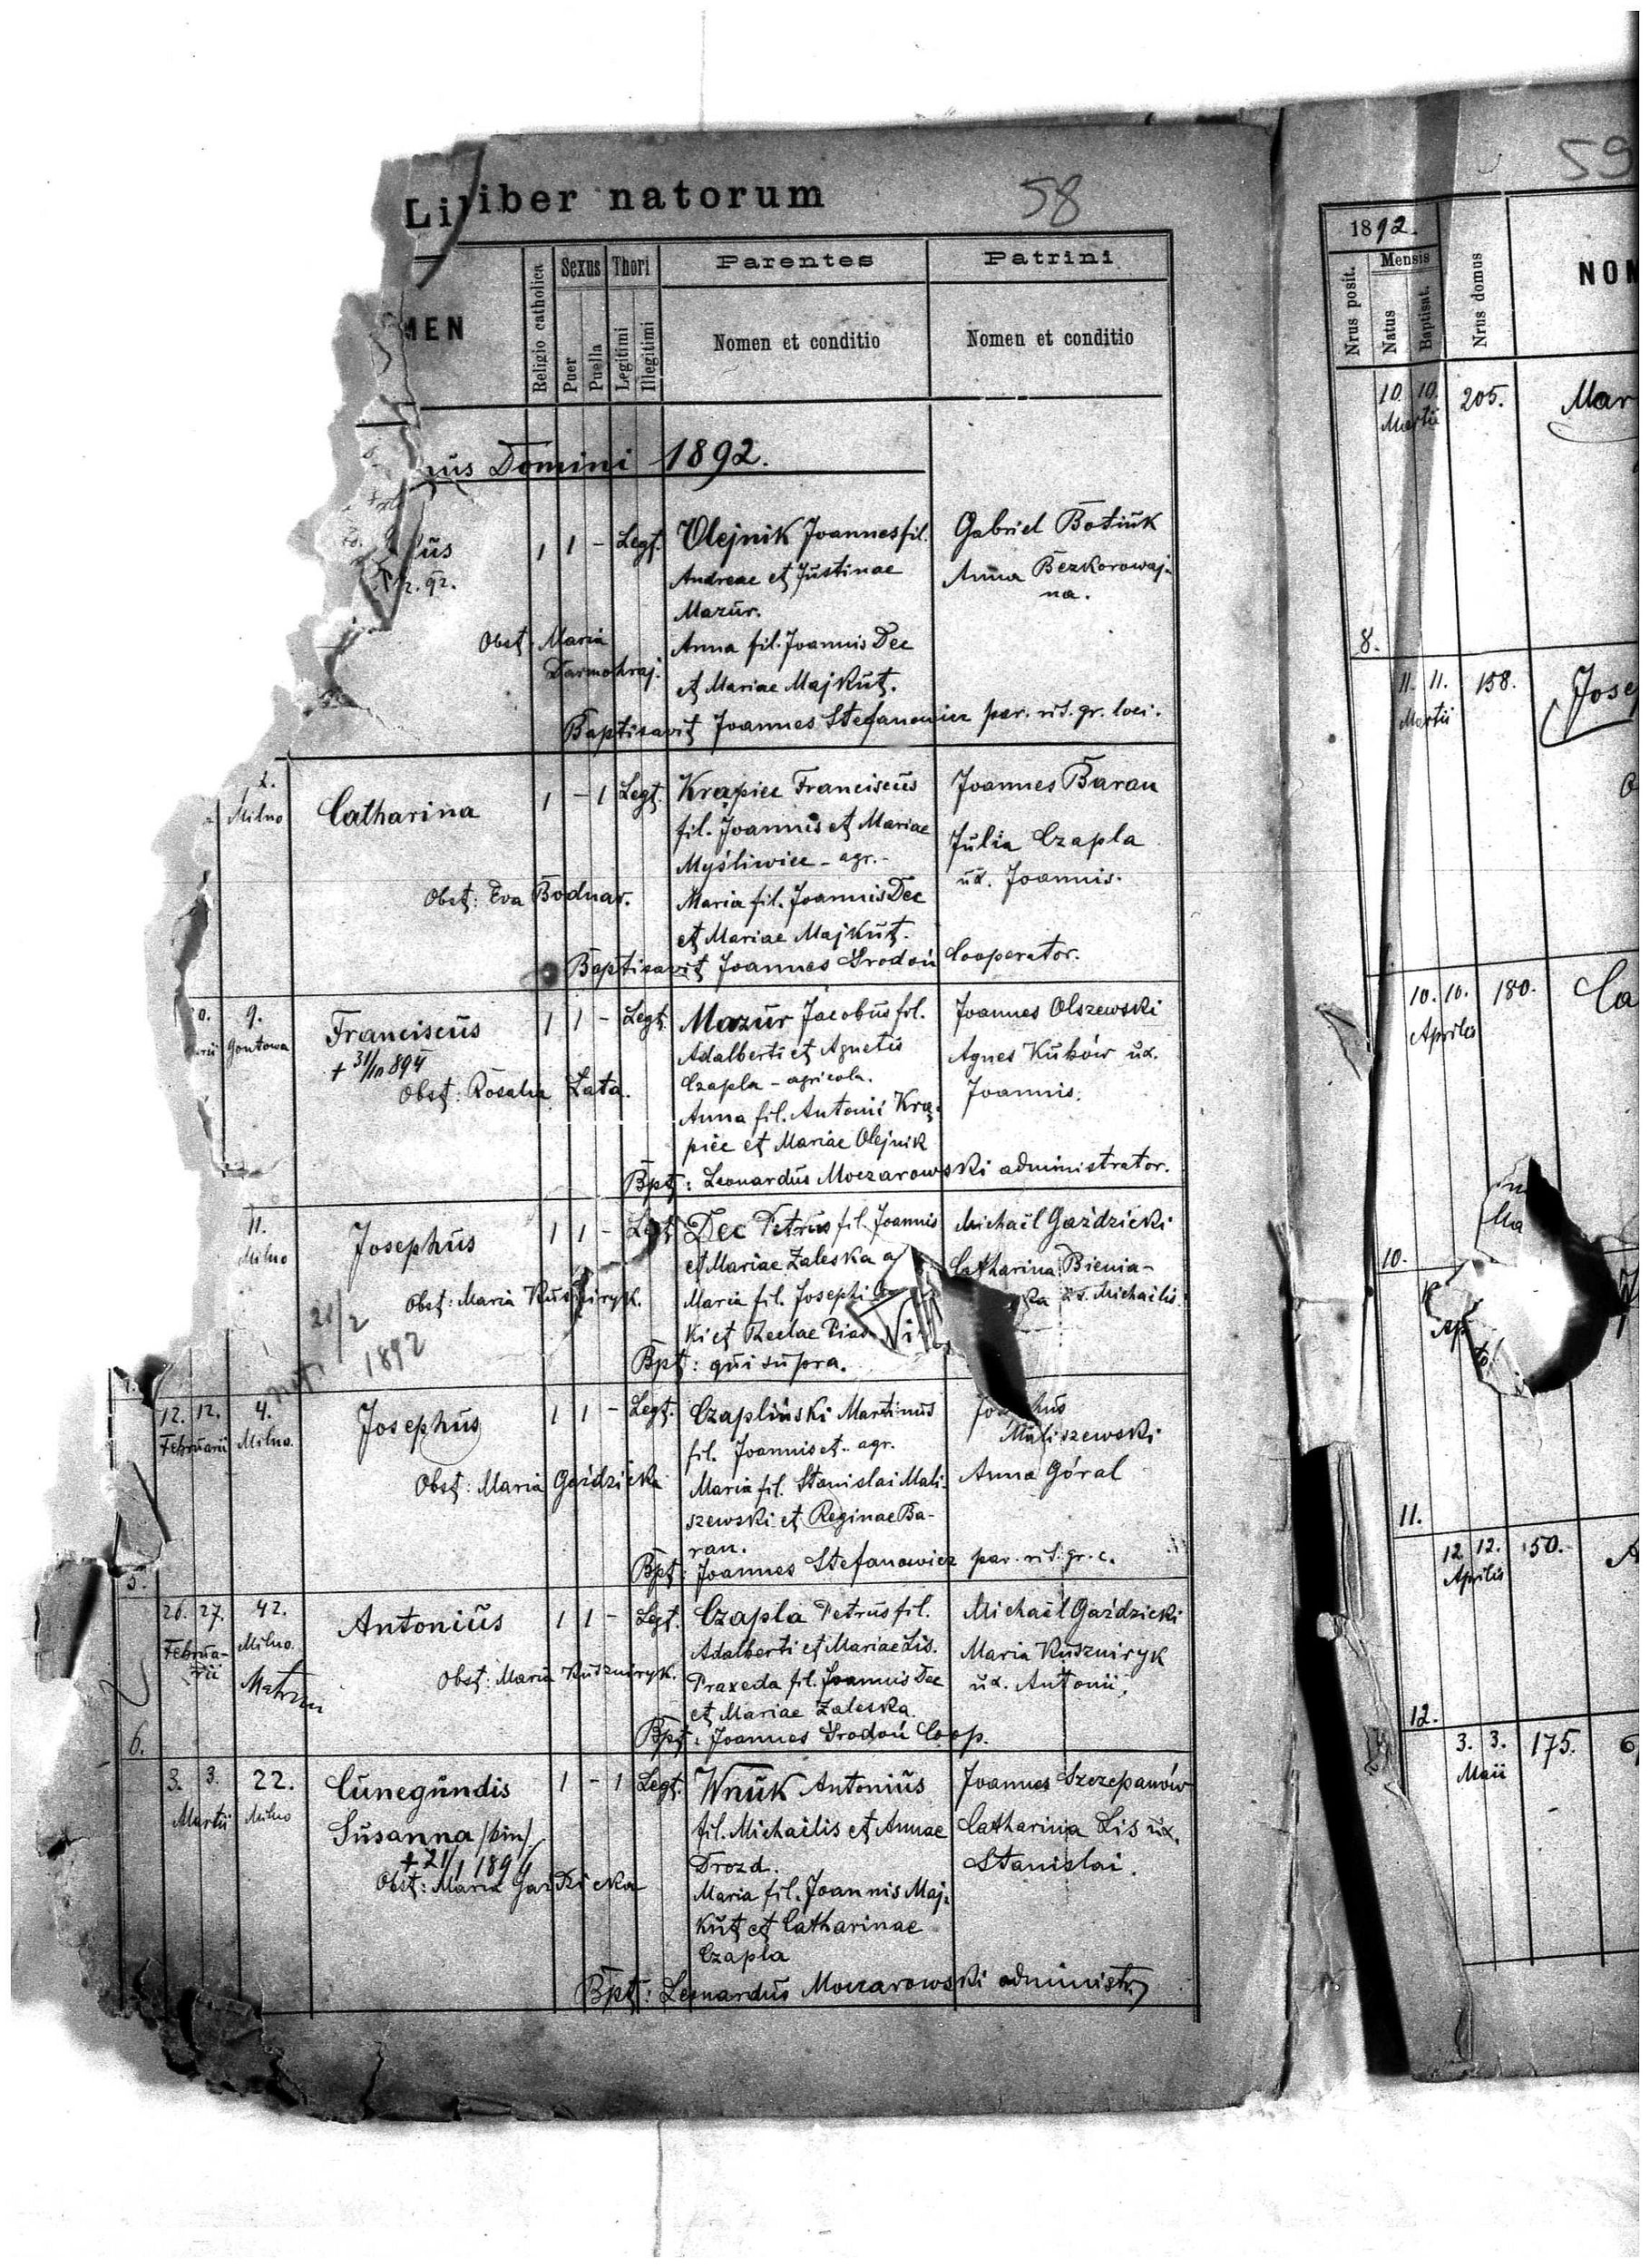 Liber natorum
58
MEN
Religio catholica
Sexus
Puer
Puella
Thori
Legitimi
Illegitimi
Parentes
Nomen et conditio
Patrini
Nomen et conditio
Domini 1892.
1 1 - Legt.
Olejnik Joannes fil.
Andreae et Justinae
Mazur.
Anna fil. Joannis Dec
et Mariae Majkut.
Gabriel Botiuk
Anna Bezkorowaj-
na.
Obst. Maria
Darmohraj.
Baptisavit Joannes Stefanowicz par. rit. gr. loci.
2.
Milno
Catharina
1 - 1 Legt.
Krąpiec Franciscus
fil. Joannis et Mariae
Myśliwiec - agr. -
Maria fil. Joannis Dec
et Mariae Majkut.
Joannes Baran
Julia Czapla
ux. Joannis.
Obst: Eva Bodnar.
Baptisavit Joannes Srodoń Cooperator.
9.
Gontowa
Franciscus
1 1 - Legt.
Obst: Rosalia Lata.
Mazur Jacobus fil.
Adalberti et Agnetis
Czapla - agricola.
Anna fil. Antonii Krą-
piec et Mariae Olejnik
Joannes Olszewski
Agnes Kubów ux.
Joannis.
Bpt: Leonardus Moczarowski administrator.
11.
Milno
Josephus
1 1 - Legt
Obst: Maria Kuszniryk.
21/2
1892
Dec Petrus fil. Joannis
et Mariae Zaleska
Maria fil. Josephi
ki et Theclae
Michaël Gaździcki
Catharina Bienia-
ux. Michaëlis.
Bpt: qui supra.
12. 12.
Februarii
4.
Milno.
Josephus
1 1 - Legt.
Obst: Maria Gaździcka
Czapliński Martinus
fil. Joannis et .. agr.
Maria fil. Stanislai Mali-
szewski et Reginae Ba-
ran.
Maliszewski
Anna Góral
Bpt: Joannes Stefanowicz par. rit. gr. c.
5.
26. 27.
Februa-
rii
42.
Milno.
Antonius
1 1 - Legt.
Obst: Maria Kuszniryk.
Czapla Petrus fil.
Adalberti et Mariae Lis.
Praxeda fil. Joannis Dec
et Mariae Zaleska.
Michaël Gaździcki
Maria Kuszniryk
ux. Antonii.
Bpt: Joannes Srodoń Coop.
6.
3. 3.
Martii
22.
Milno
Cunegundis
Susanna /bin/.
1 - 1 Legt.
Obst: Maria Gaździcka
Wnuk Antonius
fil. Michaëlis et Annae
Drozd.
Maria fil. Joannis Maj-
kut et Catharinae
Czapla
Joannes Szczepanów
Catharina Lis ux.
Stanislai.
Bpt: Leonardus Moczarowski administr.
59
1892.
Nrus posit.
Mensis
Natus
Baptisat.
Nrus domus
NOM
10. 10.
Martii
205.
Mar
8.
11. 11.
Martii
158.
Jose
10. 10.
Aprilis
180.
Ca
10.
11.
12. 12.
Aprilis
50.
12.
3. 3.
Maii
175.